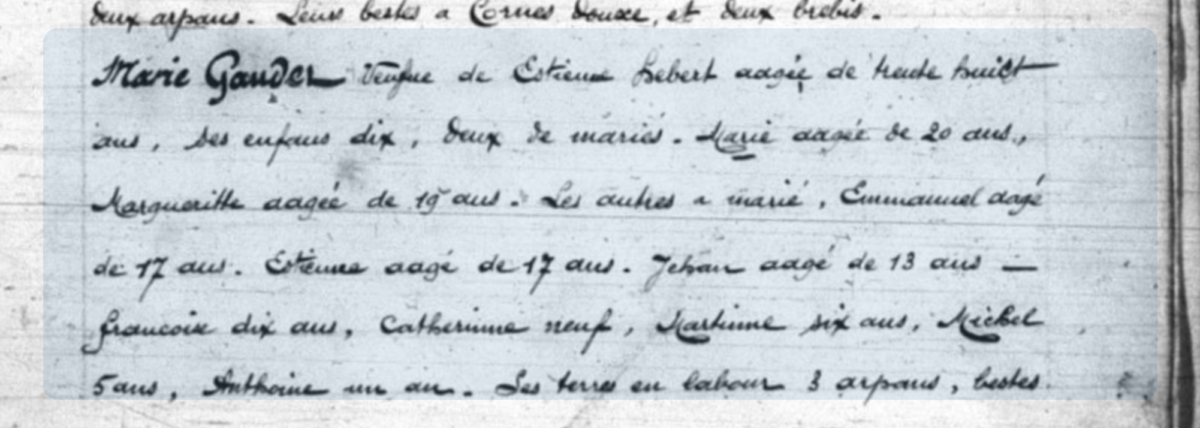 deux arpans. Leurs bestes a Cornes douxe, et deux brebis.
Marie Gaudet Veufue de Estienne hebert aagée de trente huict
ans, Ses enfans dix, deux de mariés. Marie aagée de 20 ans.,
Margueritte aagéé de 19 ans. Les autres a marié, Emmanuel aagé
de 17 ans. Estienne aagé de 17 ans. Jehan aagé de 13 ans —
francoise dix ans, Catherinne neuf, Martinne six ans, Michel
5 ans, Anthoine un an. Ses terres en labour 3 arpans, bestes